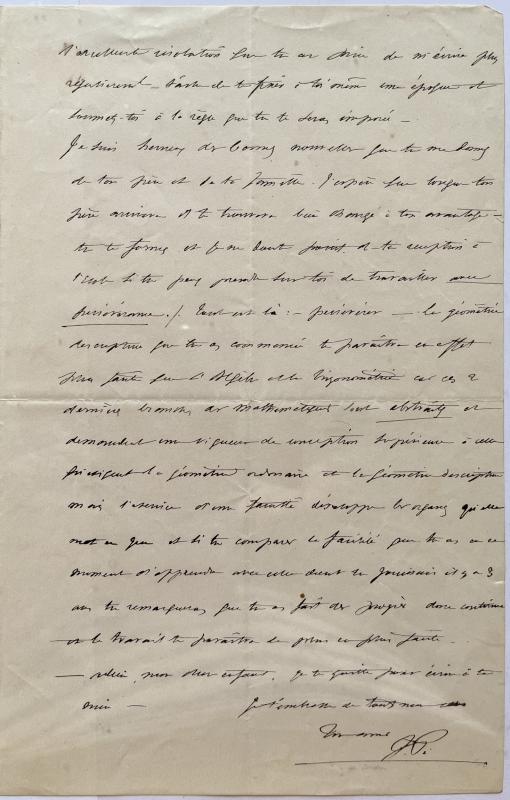 l'excellente résolution que tu as prise de m'écrire plus
régulièrement – tâche de te fixer à toi même une époque et
soumets-toi à la règle que tu te seras imposée –
Je suis heureux des bonnes nouvelles que tu me donnes
de ton frère et de ta famille. J'espère que lorsque ton
père arrivera il te trouvera bien changé à ton avantage –
tu te formes et je ne doute point de ta réception à
l'école si tu peux prendre sur toi de travailler avec
persévérance. / Tout est là : – persévérer – la géométrie
descriptive que tu as commencée te paraîtra en effet
plus facile que l'Algèbre et la trigonométrie car ces 2
dernières branches des mathématiques sont abstraites et
demandent une vigueur de conception supérieure à celle
qu'exigent la géométrie ordinaire et la géométrie descriptive
mais l'exercice d'une faculté développe les organes qu'elle
met en jeu et si tu compares la facilité que tu as en ce
moment d'apprendre avec celle dont tu jouissais il y a 3
ans tu remarqueras que tu as fait des progrès donc continue
et le travail te paraîtra de plus en plus facile.
– adieu, mon cher enfant, je te quitte pour écrire à ta
mère – Je t'embrasse de tout mon